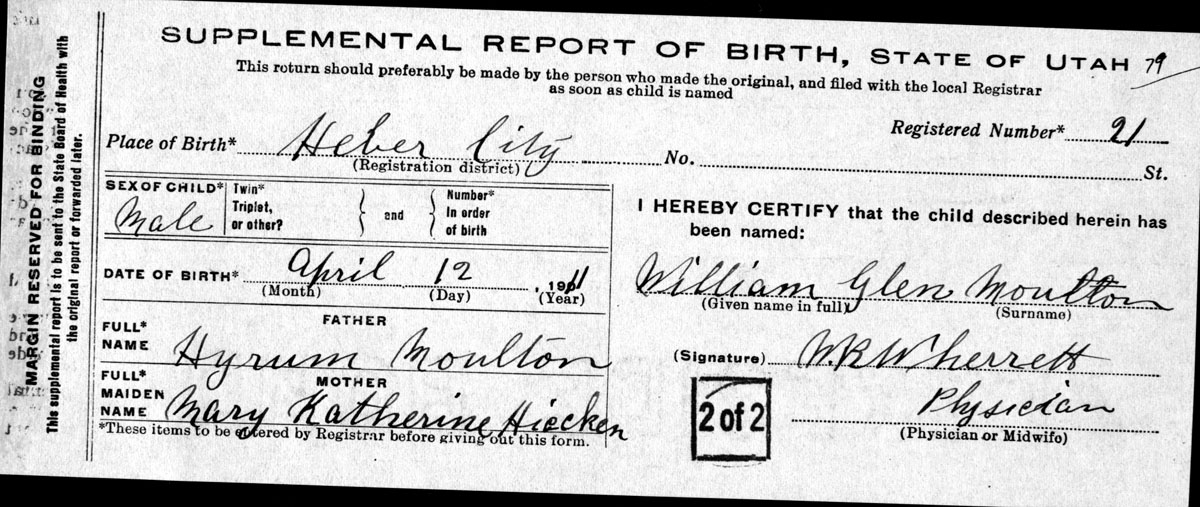 SUPPLEMENTAL REPORT OF BIRTH, STATE OF UTAH 79
This return should preferably be made by the person who made the original, and filed with the local Registrar
as soon as child is named
Registered Number* 21
Place of Birth* Heber City No. St.
(Registration district)
SEX OF CHILD* Male
Twin* Triplet, or other?
and
Number* In order of birth
DATE OF BIRTH* April 12, 1911
(Month) (Day) (Year)
FATHER
FULL* NAME Hyrum Moulton
MOTHER
FULL* MAIDEN NAME Mary Katherine Hiecken
*These items to be entered by Registrar before giving out this form.
I HEREBY CERTIFY that the child described herein has
been named:
William Glen Moulton
(Given name in full) (Surname)
(Signature) W.R. Wherrett
Physician
(Physician or Midwife)
2 of 2
MARGIN RESERVED FOR BINDING
This supplemental report is to be sent to the State Board of Health with
the original report or forwarded later.